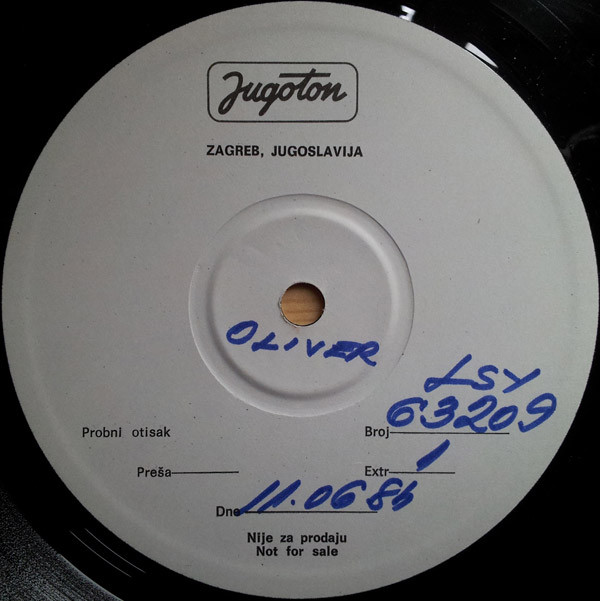 Jugoton
ZAGREB, JUGOSLAVIJA
OLIVER
LSY
Probni otisak
Broj 63209
Preša
Extr 1
Dne 11.06 86
Nije za prodaju
Not for sale